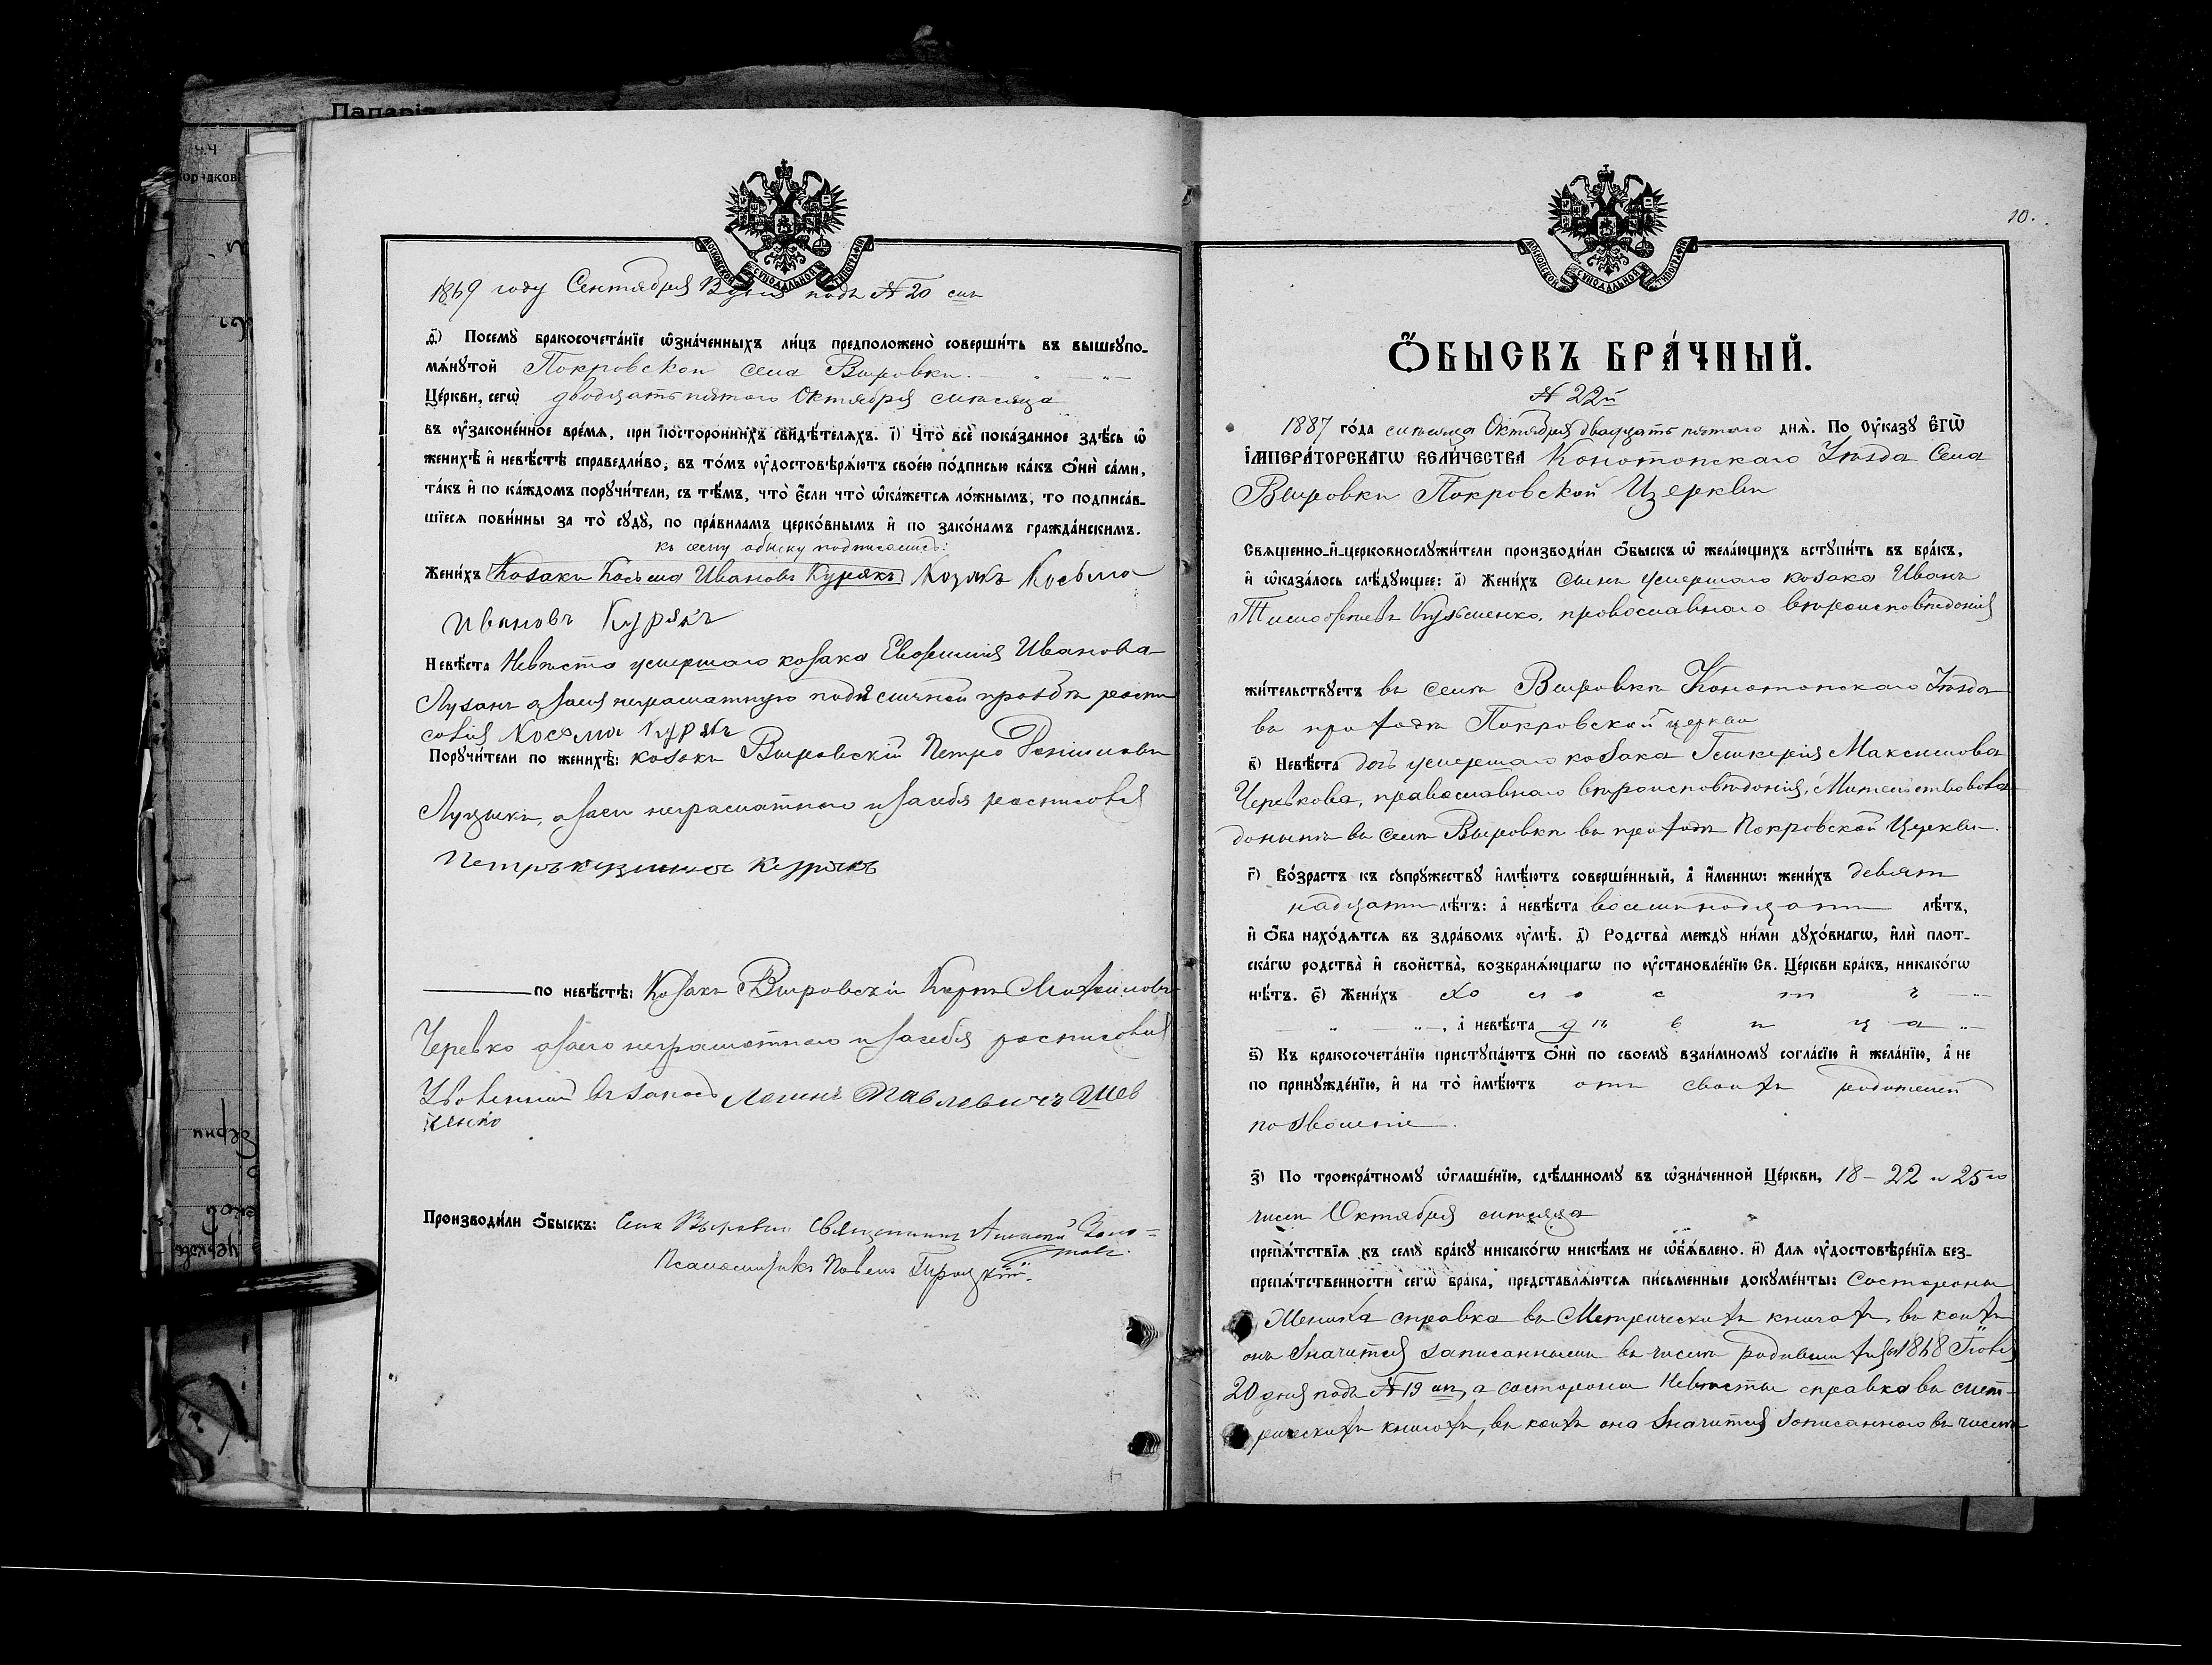 1869 году Сентября подъ № 20 мъ
д҃) Посемꙋ̀ бракосочета́нїе ѡ҆зна́ченныхъ ли́цъ предположено̀ соверши́ть въ вышеꙋпо-
мѧ́нꙋтой Покровской села Вировки.
Це́ркви, сегѡ̀ двадцать пятого Октября мѣсяца
въ ᲂу҆законе́нное вре́мѧ, при посторо́ннихъ свидѣ́телѧхъ. і҃) Что̀ всѐ пока́занное здѣ́сь ѡ҆
женихѣ̀ и҆ невѣ́стѣ справедли́во, въ то́мъ ᲂу҆достовѣрѧ́ютъ свое́ю по́дписью ка́къ ѻ҆нѝ са́ми,
та́къ и҆ по ка́ждомъ порꙋчи́тели, съ тѣ́мъ, что̀ є҆́сли что̀ ѡ҆ка́жетсѧ ло́жнымъ, то подписа́в-
шїесѧ пови́нны за то̀ сꙋдꙋ̀, по пра́виламъ церко́внымъ и҆ по зако́намъ гражда́нскимъ.
къ сему обыску подписались:
Жени́хъ Козакъ Косьма Ивановъ Курякъ Козакъ Косьма
Ивановъ Курякъ
Невѣ́ста Невѣста умершого козака Евфимия Иванова
Лузанъ а заея неграматную
Косьма Курякъ
Порꙋчи́тели по женихѣ̀: козакъ Вировскій Петро
а заего неграматного и засебя росписовся
Петръ Курякъ
по невѣ́стѣ: Козакъ Вировскій Карпъ Михайловъ
Черевко а заего неграмотного и засебя росписовся
Уволенный въ запасъ Логинъ Павловичъ Шев
ченко
Производи́ли ѻ҆́быскъ: Села Вировки Священникъ
Псаломщикъ Павелъ
МОСКОВСКОЙ СѴНОДАЛЬНОЙ ТИПОГРАФІИ
10.
МОСКОВСКОЙ СѴНОДАЛЬНОЙ ТИПОГРАФІИ
Ѻ҆́БЫСКЪ БРА́ЧНЫЙ.
№ 22й
1887 го́да мѣсяца Октября двадцать пятого днѧ̀. По Оу҆ка́зꙋ Є҆ГѠ̀
І҆МПЕРА́ТОРСКАГѠ ВЕЛИ́ЧЕСТВА Конотопского Уѣзда Села
Вировки Покровской Церкви
Свѧще́нно-и҆-церковнослꙋжи́тели производи́ли ѻ҆́быскъ ѡ҆ жела́ющихъ встꙋпи́ть въ бра́къ,
и҆ ѡ҆каза́лось слѣ́дꙋющее: а҃) Жени́хъ сынъ умершого козака Иванъ
Тимофеевъ Кузьменко, провославного вѣроисповѣдонія
жи́тельствꙋетъ въ селѣ Вировкѣ Конотопского Уѣзда
въ приходѣ Покровской церкви
в҃) Невѣ́ста дочь умершого козака Гликерія Максимова
Черевкова, православного вѣроисповѣдонія, Жительствовова
донынѣ въ селѣ Вировкѣ въ приходѣ Покровской Церкви.
г҃) Во́зрастъ къ сꙋпрꙋ́жествꙋ и҆мѣ́ютъ соверше́нный, а҆̀ и҆́меннѡ: жени́хъ девят
надцати лѣ́тъ: а҆̀ невѣ́ста восемнодцоти лѣ́тъ,
и҆ ѻ҆́ба нахо́дѧтсѧ въ здра́вомъ ᲂу҆мѣ̀. д҃) Родства̀ междꙋ̀ ни́ми дꙋхо́внагѡ, и҆лѝ плот-
ска́гѡ родства̀ и҆ свойства̀, возбранѧ́ющагѡ по ᲂу҆становле́нїю Св. Це́ркви бра́къ, никако́гѡ
нѣ́тъ. є҃) Жени́хъ холостъ
, а҆̀ невѣ́ста дѣвица
ѕ҃) Къ бракосочета́нїю пристꙋпа́ютъ ѻ҆нѝ по своемꙋ̀ взаи́мномꙋ согла́сїю и҆ жела́нїю, а҆̀ не
по принꙋжде́нїю, и҆ на то̀ и҆мѣ́ютъ отъ своихъ родителей
позволеніе.
з҃) По троекра́тномꙋ ѡ҆глаше́нїю, сдѣ́ланномꙋ въ ѡ҆зна́ченной Це́ркви, 18 – 22 и 25го
чиселъ Октября мѣсяца
препѧ́тствїѧ къ семꙋ̀ бра́кꙋ никако́гѡ никѣ́мъ не ѡ҆б̾ѧ́влено. и҃) Длѧ ᲂу҆достовѣре́нїѧ без-
препѧ́тственности сегѡ̀ бра́ка, представлѧ́ютсѧ пи́сьменные докꙋме́нты: Состороны
Жениха справка въ Метрическихъ книгахъ, въ коихъ
онъ значится записаннымъ въ числѣ родившихся 1868 Іюля
20 дня подъ № 19 мъ, а состороны Невѣсты справка въ мет-
рическихъ книгохъ, въ коихъ она значится зописанною въ числѣ